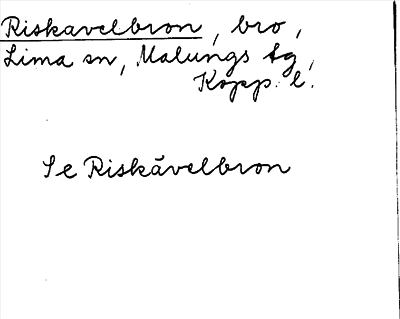 Riskavelbron, bro,
Lima sn, Malungs tg,
Kopp. l.
Se Riskåvelbron